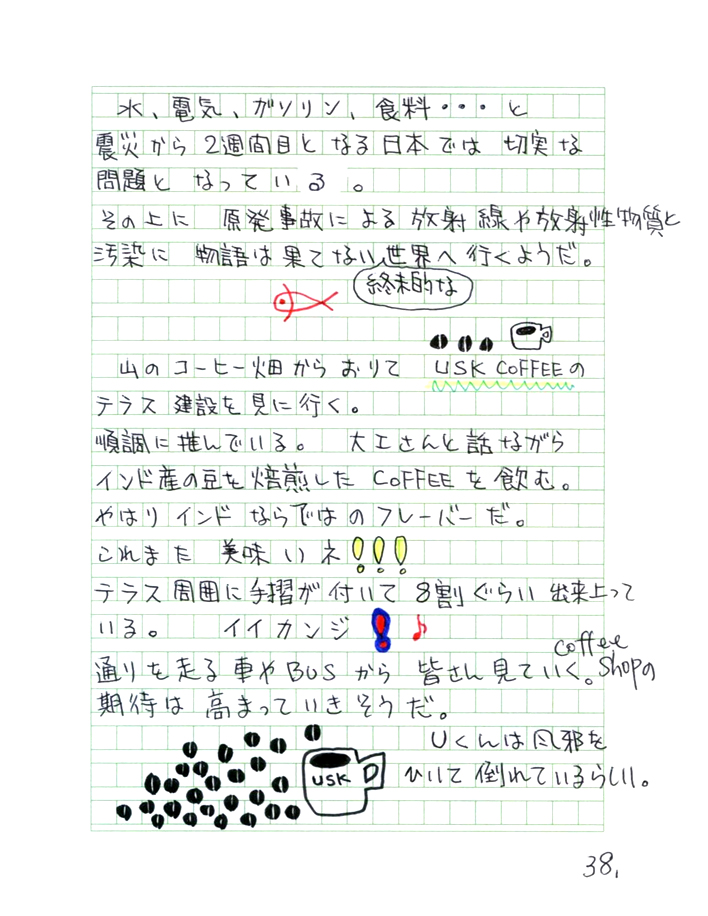 水、電気、ガソリン、食料・・・と
震災から2週間目となる日本では切実な
問題となっている。
その上に 原発事故による放射線や放射性物質と
汚染に 物語は果てない世界へ行くようだ。
終末的な
山のコーヒー畑からおりて USK COFFEEの
テラス建設を見に行く。
順調に進んでいる。 大工さんと話ながら
インド産の豆を焙煎した COFFEEを飲む。
やはりインドならではのフレーバーだ。
これまた 美味いネ!!!
テラス周囲に手摺が付いて 8割ぐらい出来上って
いる。 イイカンジ!♪
通りを走る車やBUSから 皆さん見ていく。coffee Shopの
期待は高まっていきそうだ。
Uくんは風邪を
ひいて倒れているらしい。
USK
38,